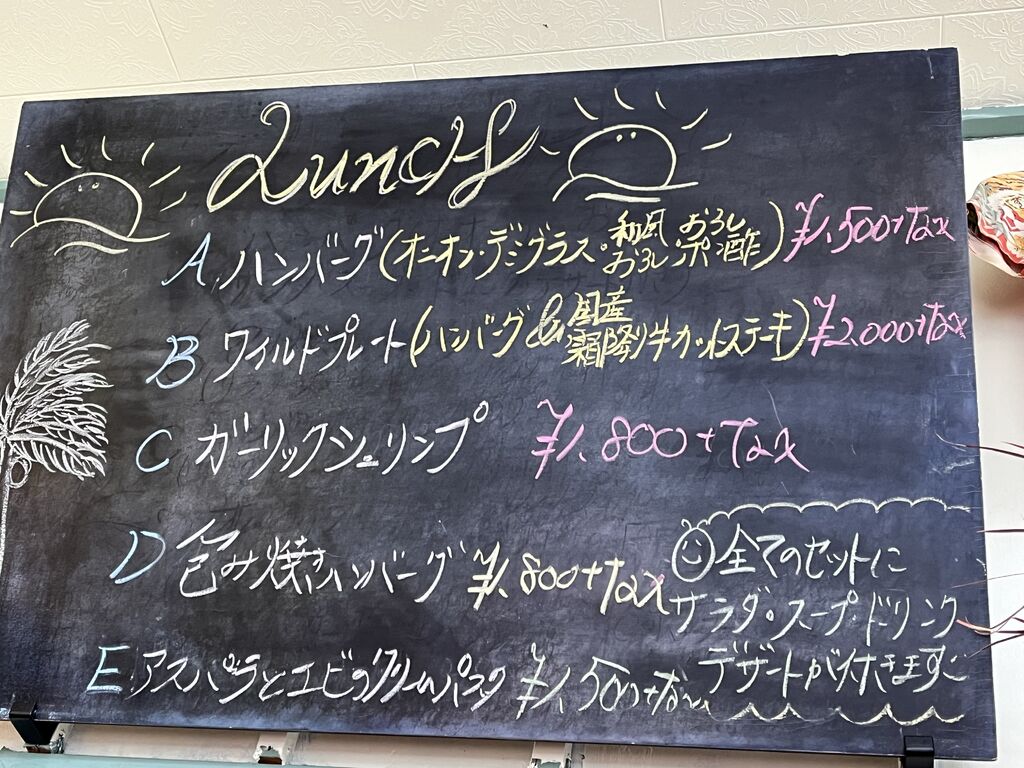 Lunch
A ハンバーグ(オニオン・デミグラス・和風おろし・おろしポン酢) ¥1,500+Tax
B ワイルドプレート(ハンバーグ&国産霜降り牛カットステーキ) ¥2,000+Tax
C ガーリックシュリンプ ¥1,800+Tax
D 包み焼きハンバーグ ¥1,800+Tax
E アスパラとエビの ¥1,500+Tax
全てのセットに
サラダ・スープ・ドリンク
デザートが付きます